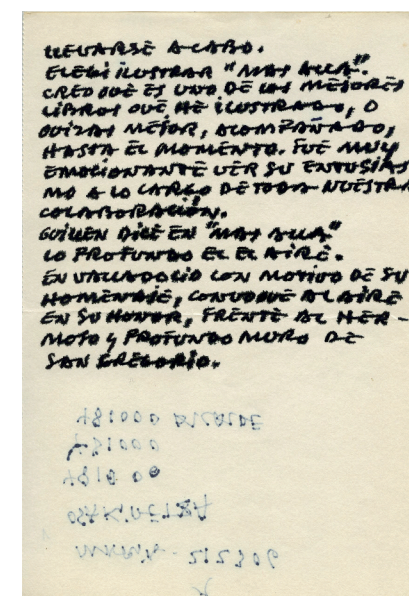 LLEVARSE A CABO.
ELEGI ILUSTRAR "MAS ALLA".
CREO QUE ES UNO DE LOS MEJORES
LIBROS QUE HE ILUSTRADO, O
QUIZAS MEJOR, ACOMPAÑADO,
HASTA EL MOMENTO. FUE MUY
EMOCIONANTE VER SU ENTUSIAS
MO A LO LARGO DE TODA NUESTRA
COLABORACIÓN.
GUILLEN DICE EN "MAS ALLA"
LO PROFUNDO ES EL AIRE.
EN VALLADOLID CON MOTIVO DE SU
HOMENAJE, CONVOQUE AL AIRE
EN SU HONOR, FRENTE AL HER-
MOSO Y PROFUNDO MURO DE
SAN GREGORIO.